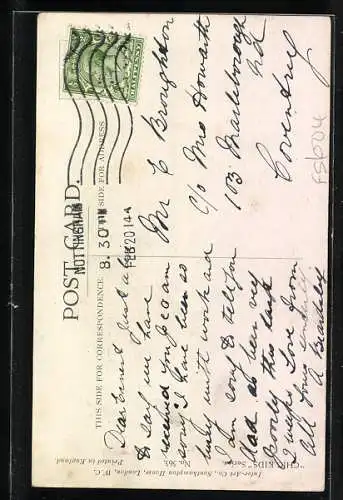 POST CARD.
THIS SIDE FOR CORRESPONDENCE
SIDE FOR ADDRESS
NOTTINGHAM
8.30 PM
FEB 20 14
Dear Ernest Just a line
to say we have
received your P.C am
sorry I have been so
busy with work and
I am sorry to tell you
Dad as been very
poorly this last
2 weeks Love from
All yours sincerely
A Bradley
Mr E Broughton
c/o Mrs Howarth
103 Marlborough
Rd
Coventry
"CHIC KIDS" Series
Inter-Art Co., Southampton House, London, W.C.
No. 363.
Printed in England.